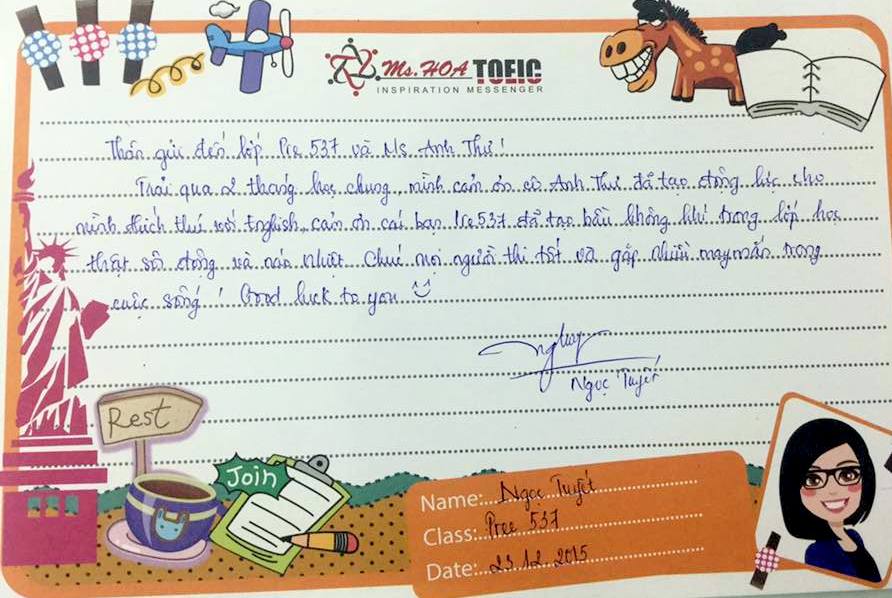 Ms. HOA TOEIC
INSPIRATION MESSENGER
Thân gửi đến lớp Pre 537 và Ms Anh Thư!
Trải qua 2 tháng học chung, mình cảm ơn cô Anh Thư đã tạo động lực cho
mình thích thú với English, cảm ơn các bạn Pre 537 đã tạo bầu không khí trong lớp học
thật sôi động và náo nhiệt. Chúc mọi người thi tốt và gặp nhiều may mắn trong
cuộc sống! Good luck to you
Ngọc Tuyết
Rest
Join
Name: Ngọc Tuyết
Class: Pree 537
Date: 23.12.2015